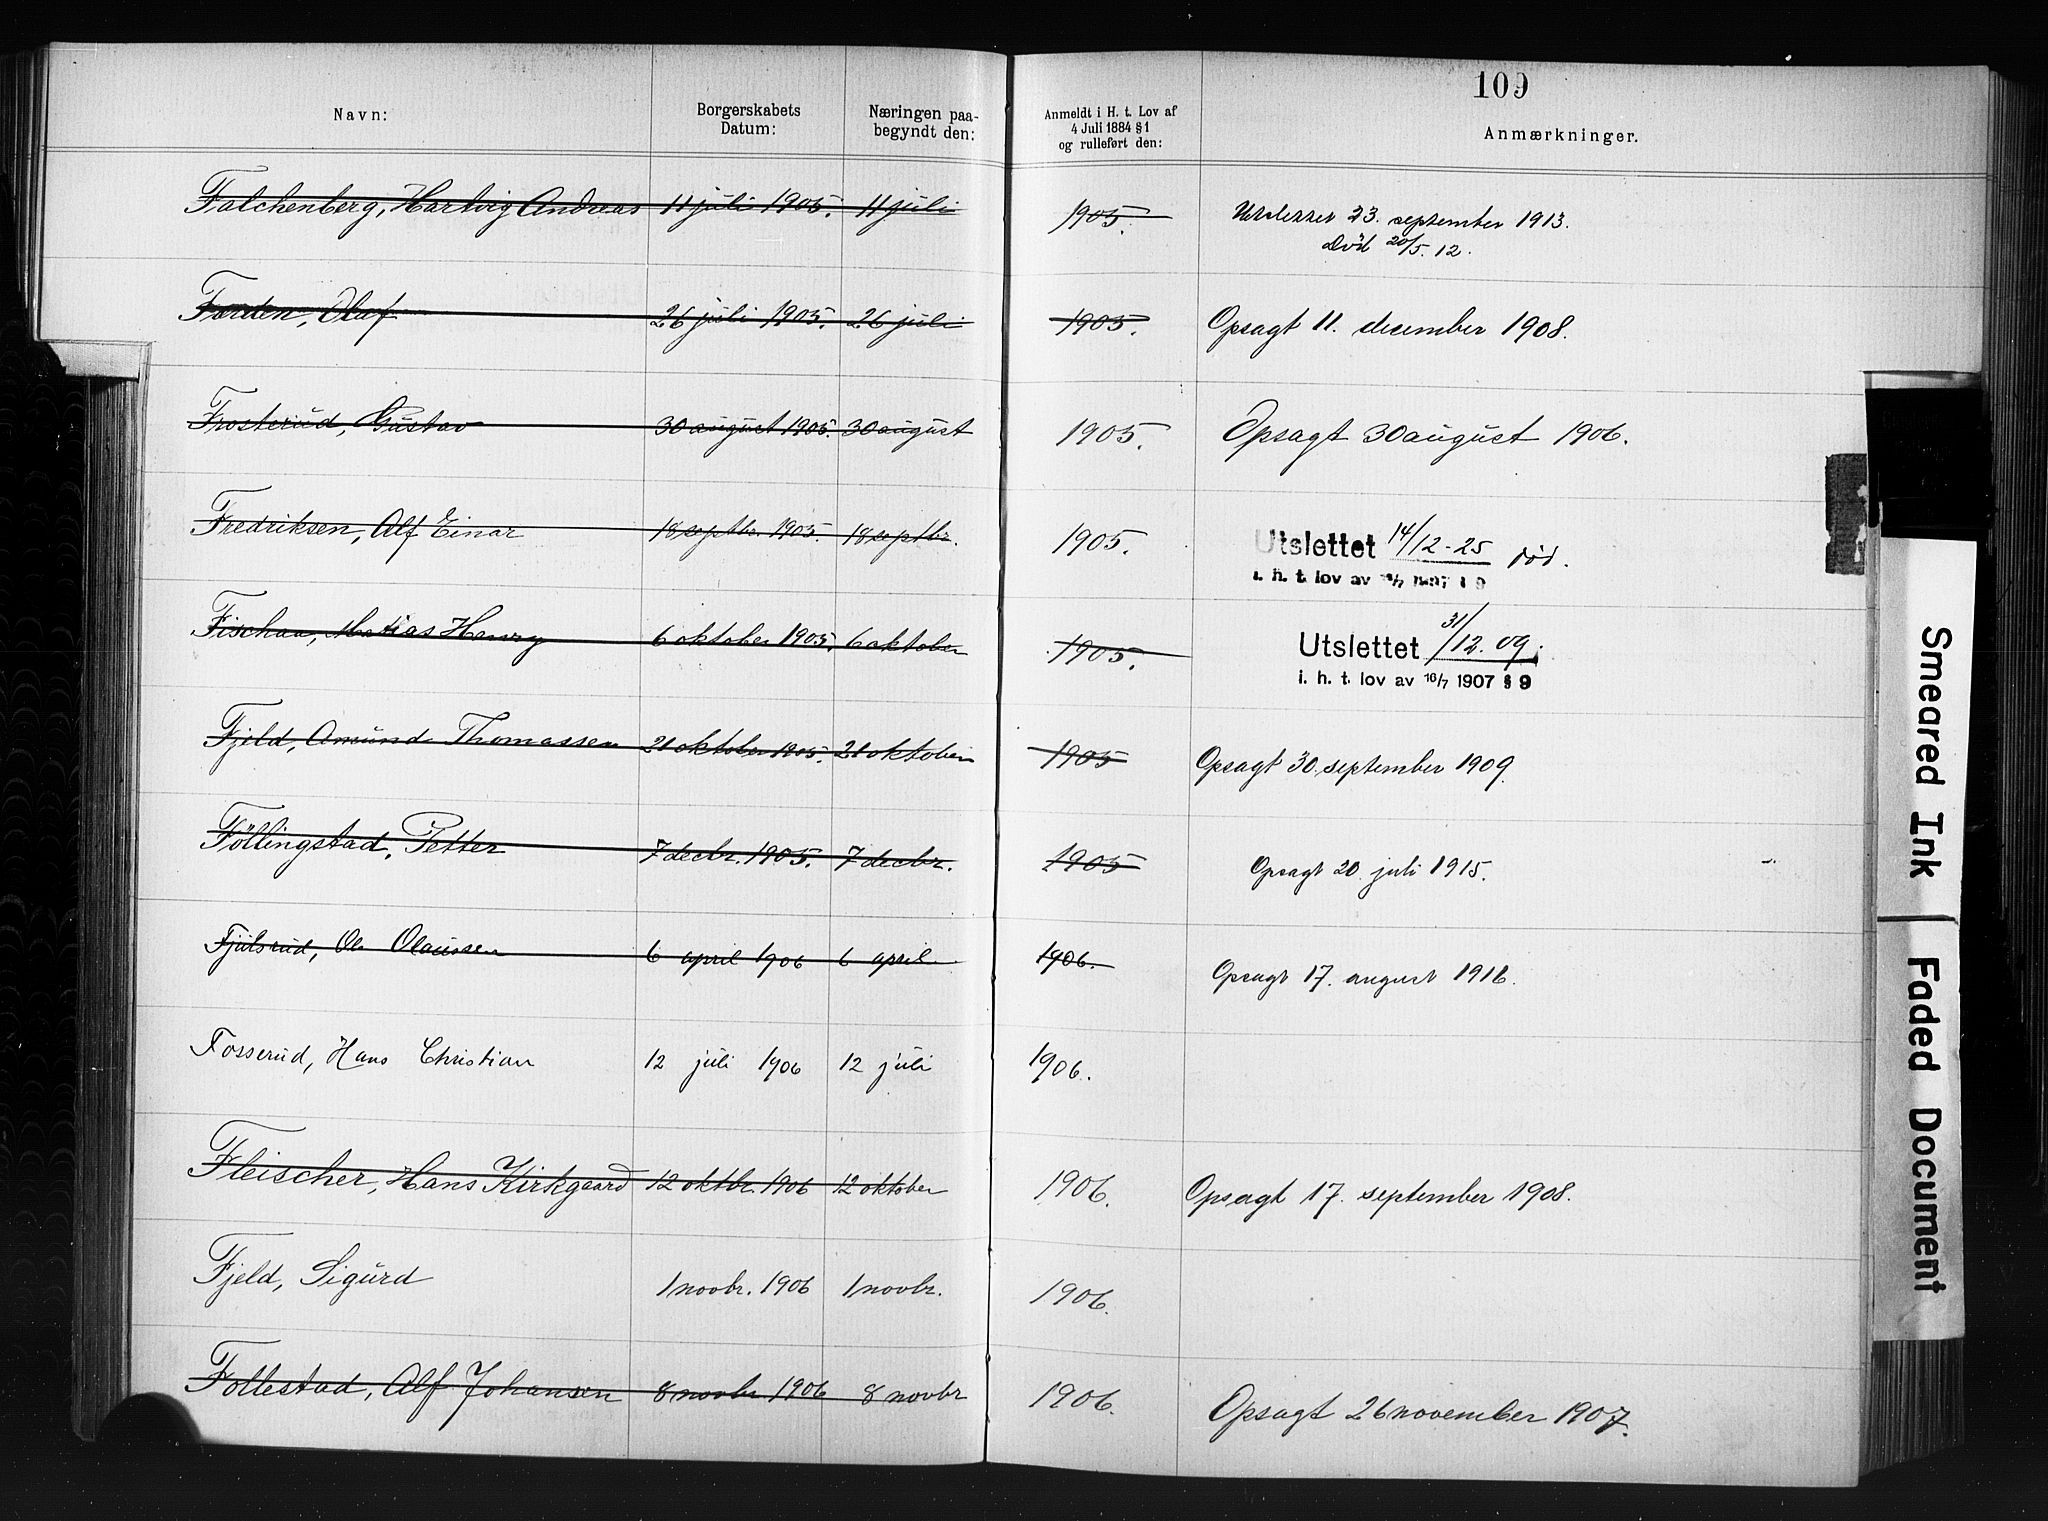 109
Navn: Borgerskabets Datum: Næringen paabegyndt den: Anmeldt i H. t. Lov af 4 Juli 1884 § 1 og rulleført den: Anmærkninger.
Falchenberg, Hartvig Andreas 11 juli 1905. 11 juli 1905. Utslettet 23. september 1913.
Död 20/5. 12.
Olaf 26 juli 1905. 26 juli 1905. Opsagt 11. december 1908.
Frosterud, Gustav 30 august 1905. 30 august 1905. Opsagt 30 august 1906.
Fredriksen, Alf Einar 18 septbr. 1905. 18 septbr. 1905. Utslettet 14/12-25 död.
i. h. t. lov av 16/7 1907 § 9
Fischau, Matias Henry 6 oktober 1905. 6 oktober 1905. Utslettet 31/12. 09.
i. h. t. lov av 16/7 1907 § 9
Fjeld, Amund Thomassen 21 oktober 1905. 21 oktober 1905 Opsagt 30. september 1909.
Föllingstad, Petter 7 decbr. 1905. 7 decbr. 1905 Opsagt 20. juli 1915.
Fjulsrud, Ole Olaussen 6 april 1906 6 april 1906. Opsagt 17. august 1916.
Fosserud, Hans Christian 12 juli 1906 12 juli 1906.
Fleischer, Hans Kirkgaard 12 oktbr. 1906 12 oktober 1906. Opsagt 17. september 1908.
Fjeld, Sigurd 1 novbr. 1906 1 novbr. 1906.
Follestad, Alf Johansen 8 novbr 1906 8 novbr 1906. Opsagt 26 november 1907.
Smeared Ink
Faded Document